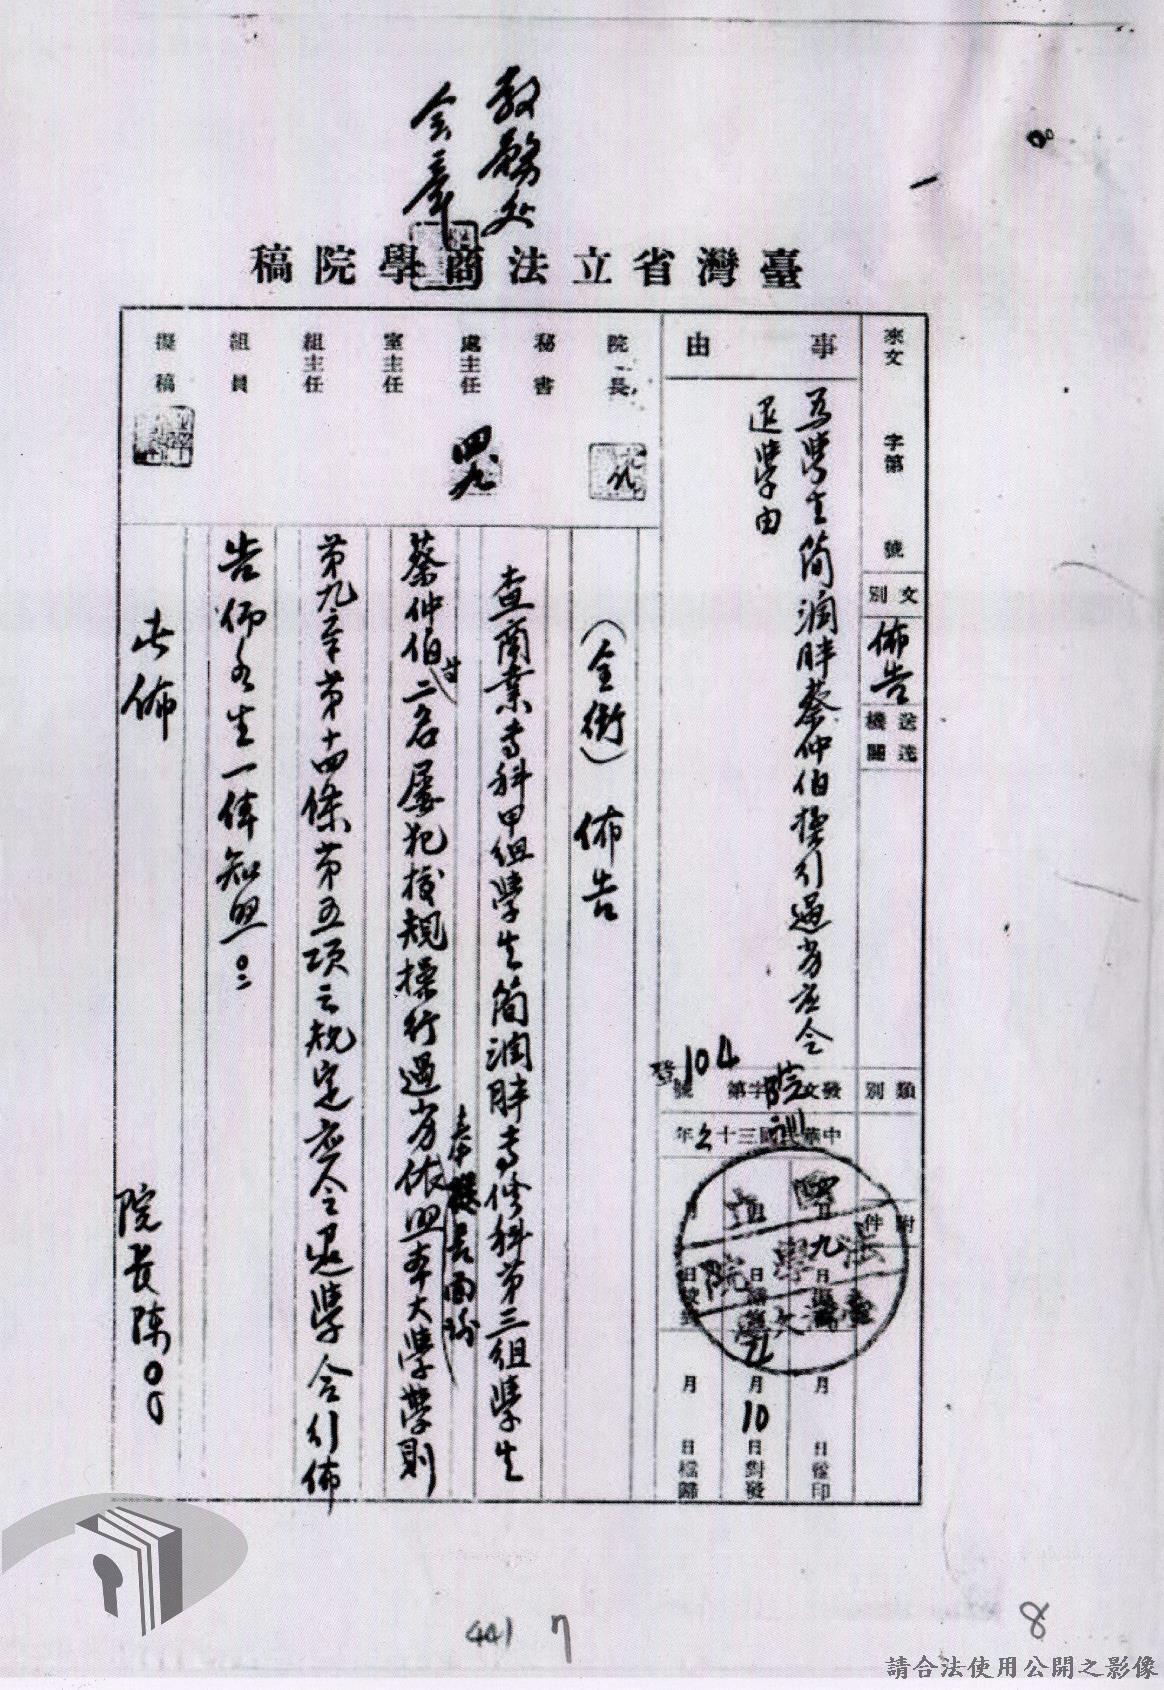 教務處
会章
臺灣省立法商學院稿
來文 字第 號
文別
佈告
送達機關
類別
附件
事由
為學生简润胖蔡仲伯操行過劣应令
退學由
發文 院訓 字第 104 號
中華民國三十 年
四月九日
月 日繕印
月10日對發
月 日檔歸
院長
秘書
處主任
室主任
組主任
組員
擬稿
四九
(全銜) 佈告
查商業专科甲组學生简润胖专修科第三组學生
蔡仲伯 廿 二名屡犯校規操行過劣依照本大學學則
奉 院長面諭
第九章第十四條第五項之規定应令退學合行佈
告仰各生一体知照。
此佈
院長陳〇〇
441
7
8
請合法使用公開之影像